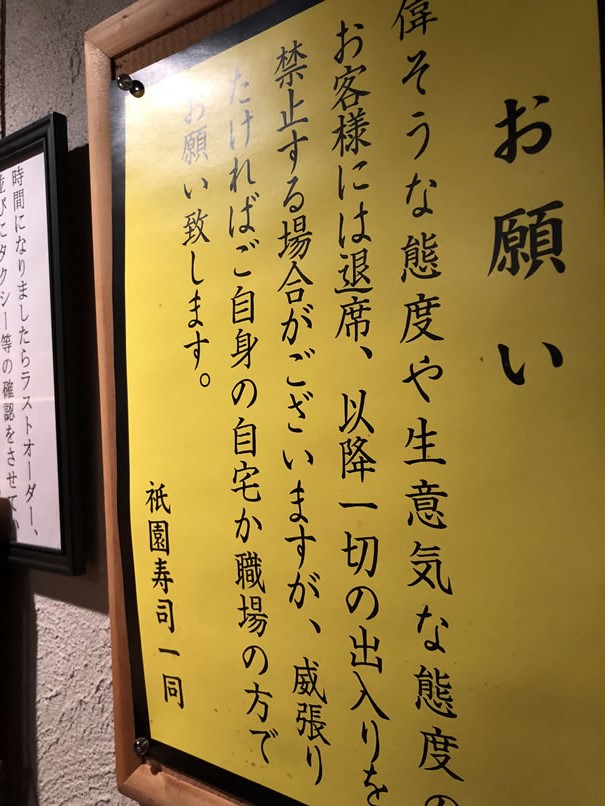 お願い
偉そうな態度や生意気な態度の
お客様には退席、以降一切の出入りを
禁止する場合がございますが、威張り
たければご自身の自宅か職場の方で
お願い致します。
祇園寿司一同
時間になりましたらラストオーダー、
並びにタクシー等の確認をさせて